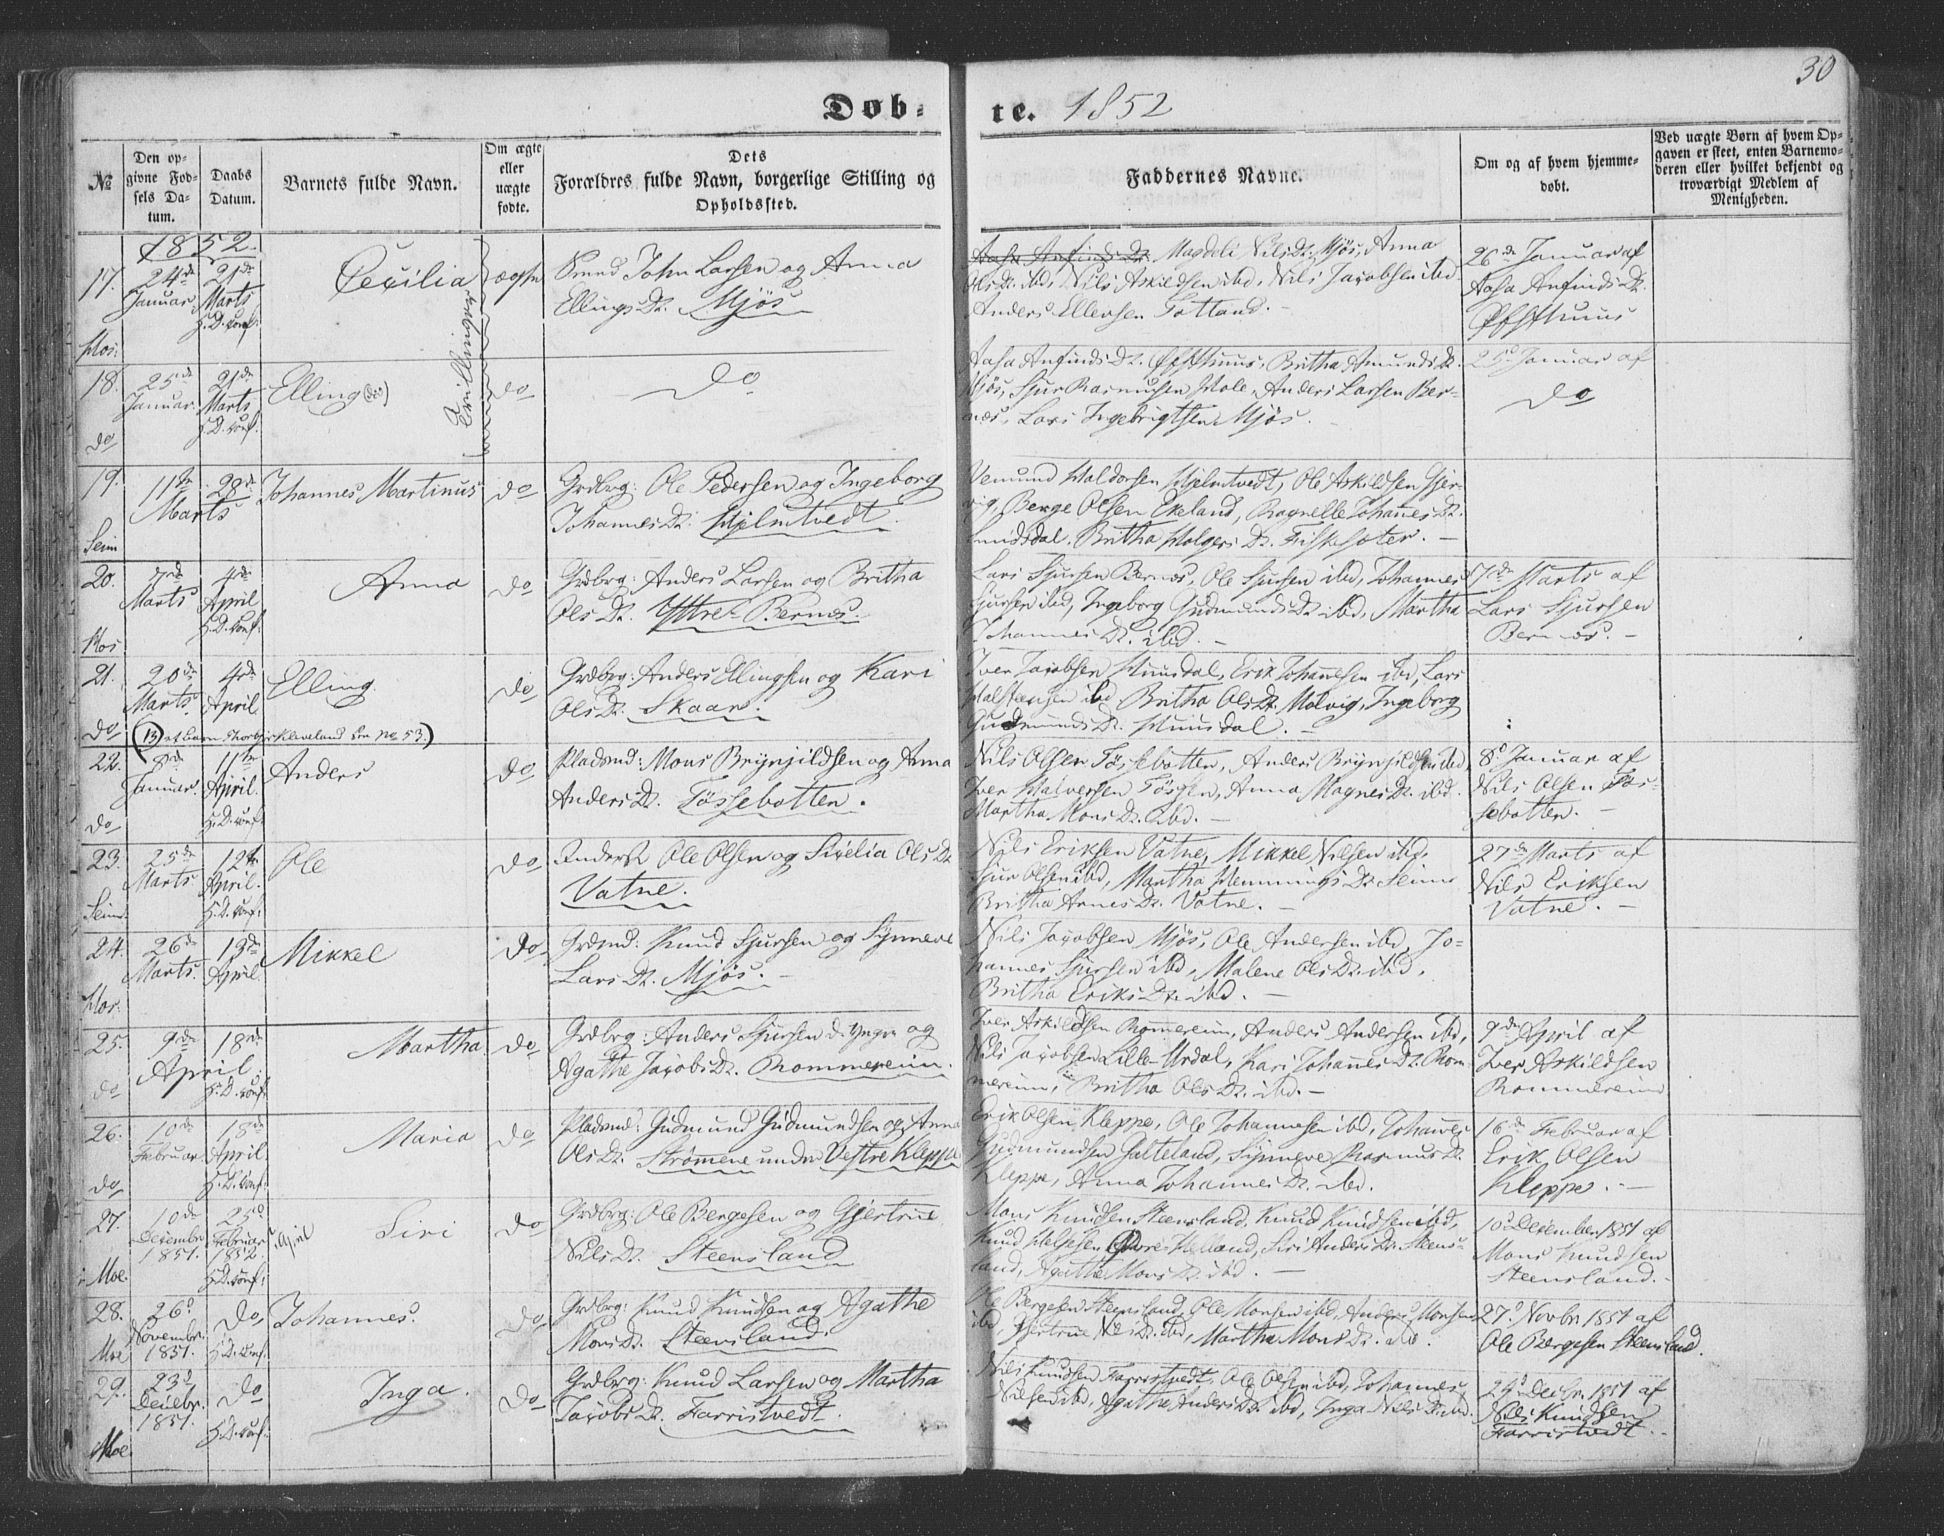 30
Døb-
te. 1852
№
Den op-
givne Fød-
sels Da-
tum.
Daabs
Datum.
Barnets fulde Navn.
Om ægte
eller
uægte
fødte.
Dets
Forældres fulde Navn, borgerlige Stilling og
Opholdssted.
Faddernes Navne.
Om og af hvem hjemme-
døbt.
Ved uægte Børn af hvem Op-
gaven er skeet, enten Barnemo-
deren eller hvilket bekjendt og
troværdigt Medlem af
Menigheden.
1852.
17.
24de
Januar
21de
Marts
H. D. Conf:
Cecilia
Tvillinger
ægte
John Larsen og Anna
Ellings D. Mjøs
Aasa Anfinds D. Magdeli Nils D. Mjøs, Anna
Ols D. ibd, Nils Askildsen ibd, Nils Jacobsen ibd.
Anders Ellensen Totland.
26de Januar af
Aasa Anfinds D.
Hos:
18.
25de
Januar.
21de
Marts
H. D. Conf:
Elling
do
do
Aasa Anfinds D. Britha Amunds D.
Mjøs, Sjur Rasmusen Hole, Anders Larsen Ber-
næs, Lars Ingebrigtsen Mjøs.
25d Januar af
do
do
19.
11te
Marts
28de
Johannes Martinus
do
Grdbrg: Ole Pedersen og Ingeborg
Johannes D. Hjelmtvedt.
Vemund Haldorsen Hjelmtvedt, Ole Askildsen Gjer-
vig, Berge Olsen Ekeland, Ragnelle Johannes D.
Britha Holgers D. Fiskesæter.
Seim
20.
Marts
4de
April
H. D. Conf:
Anna
do
Grdbrg: Anders Larsen og Britha
Ols D. Yttre Bernæs.
Lars Sjursen Bernæs, Ole Sjursen ibd, Johannes
Sjursen ibd, Ingeborg Gudmunds D. ibd, Martha
Johannes D. ibd.
7de Marts af
Lars Sjursen
Bernæs.
Hos
21.
20de
Marts.
4de
April
Elling
do
Grdbrg: Anders Ellingsen og Kari
Ols D. Skaar.
Iver Jacobsen Huusdal, Erik Johannesen ibd, Lars
Halstensen ibd, Britha Ols D. Molvig, Ingeborg
Gudmunds D. Huusdal.
do
Kleveland No 53.
22.
8de
Januar.
11te
April.
H. D. Conf:
Anders
do
Pladsmd: Mons Brynjildsen og Anna
Anders D. Tøssebotten.
Nils Olsen Tøssebotten, Anders Brynjildsen ibd,
Iver Halversen Tøssen, Anna Magnes D. ibd.
Martha Mons D. ibd.
8d Januar af
Nils Olsen Tøs-
sebotten.
do
23.
25de
Marts
12te
April.
H. D. Conf:
Ole
do
Inderst Ole Olsen og Sicelia Ols D.
Vatne.
Nils Eriksen Vatne, Mikkel Nilsen ibd.
Sjur Olsen ibd, Martha Hemmings D. Seim
Britha Arnes D. Vatne.
27de Marts af
Nils Eriksen
Vatne.
Seim
24.
26de
Marts.
13de
April
Mikkel
do
Grdmd: Knud Sjursen og Synneve
Lars D. Mjøs.
Nils Jacobsen Mjøs, Ole Andersen ibd, Jo-
hannes Sjursen ibd, Malene Ols D. ibd,
Britha Eriks D. ibd.
Hos:
25.
9de
April
18de
H. D. Conf:
Martha
do
Grdbrg: Anders Sjursen d. Yngre og
Agathe Jacobs D. Rommereim.
Iver Askildsen Rommereim, Anders Andersen ibd,
Nils Jacobsen Lille Urdal, Kari Johannes D. Rom-
mereim, Britha Ols D. ibd.
9de April af
Iver Askildsen
Rommereim
do
26.
10de
Februar
18de
April
H. D. Conf:
Maria
do
Pladsmd: Gudmund Gudmundsen og Anna
Ols D. Strømmene under Vestre Kleppe
Erik Olsen Kleppe, Ole Johannesen ibd, Johannes
Gudmundsen Galteland, Synneve Rasmus D.
Kleppe, Anna Johannes D. ibd.
16de Februar af
Erik Olsen
Kleppe.
do
27.
10de
Decembr
1851.
25d
Februar
1852
H. D. Conf:
April
Siri
do
Grdbrg: Ole Bergesen og Gjertrue
Nils D. Steensland
Mons Knudsen Steensland, Knud Knudsen ibd,
Knud Helgesen Øvre Helland, Siri Anders D. Steens-
land, Agathe Mons D. ibd.
10d Decembr 1851 af
Mons Knudsen
Steensland.
Moe
28.
26d
Novembr
1851.
do
H. D. Conf:
Johannes.
do
Grdbrg: Knud Knudsen og Agathe
Mons D. Steensland.
Ole Bergesen Steensland, Ole Monsen ibd, Anders Monsen
ibd, Gjertrue Nils D. ibd, Martha Mons D. ibd.
27d Novbr 1851 af
Ole Bergesen Steensland.
Moe
29.
23d
Decebr.
1851.
do
H. D. Conf:
Inga.
do
Grdbrg: Knud Larsen og Martha
Jacobs D. Farristvedt.
Nils Knudsen Farristvedt, Ole Olsen ibd, Johannes
Nilsen ibd, Agathe Anders D. ibd, Inga Nils D. ibd.
24d Decbr. 1851 af
Nils Knudsen
Farristvedt.
Moe